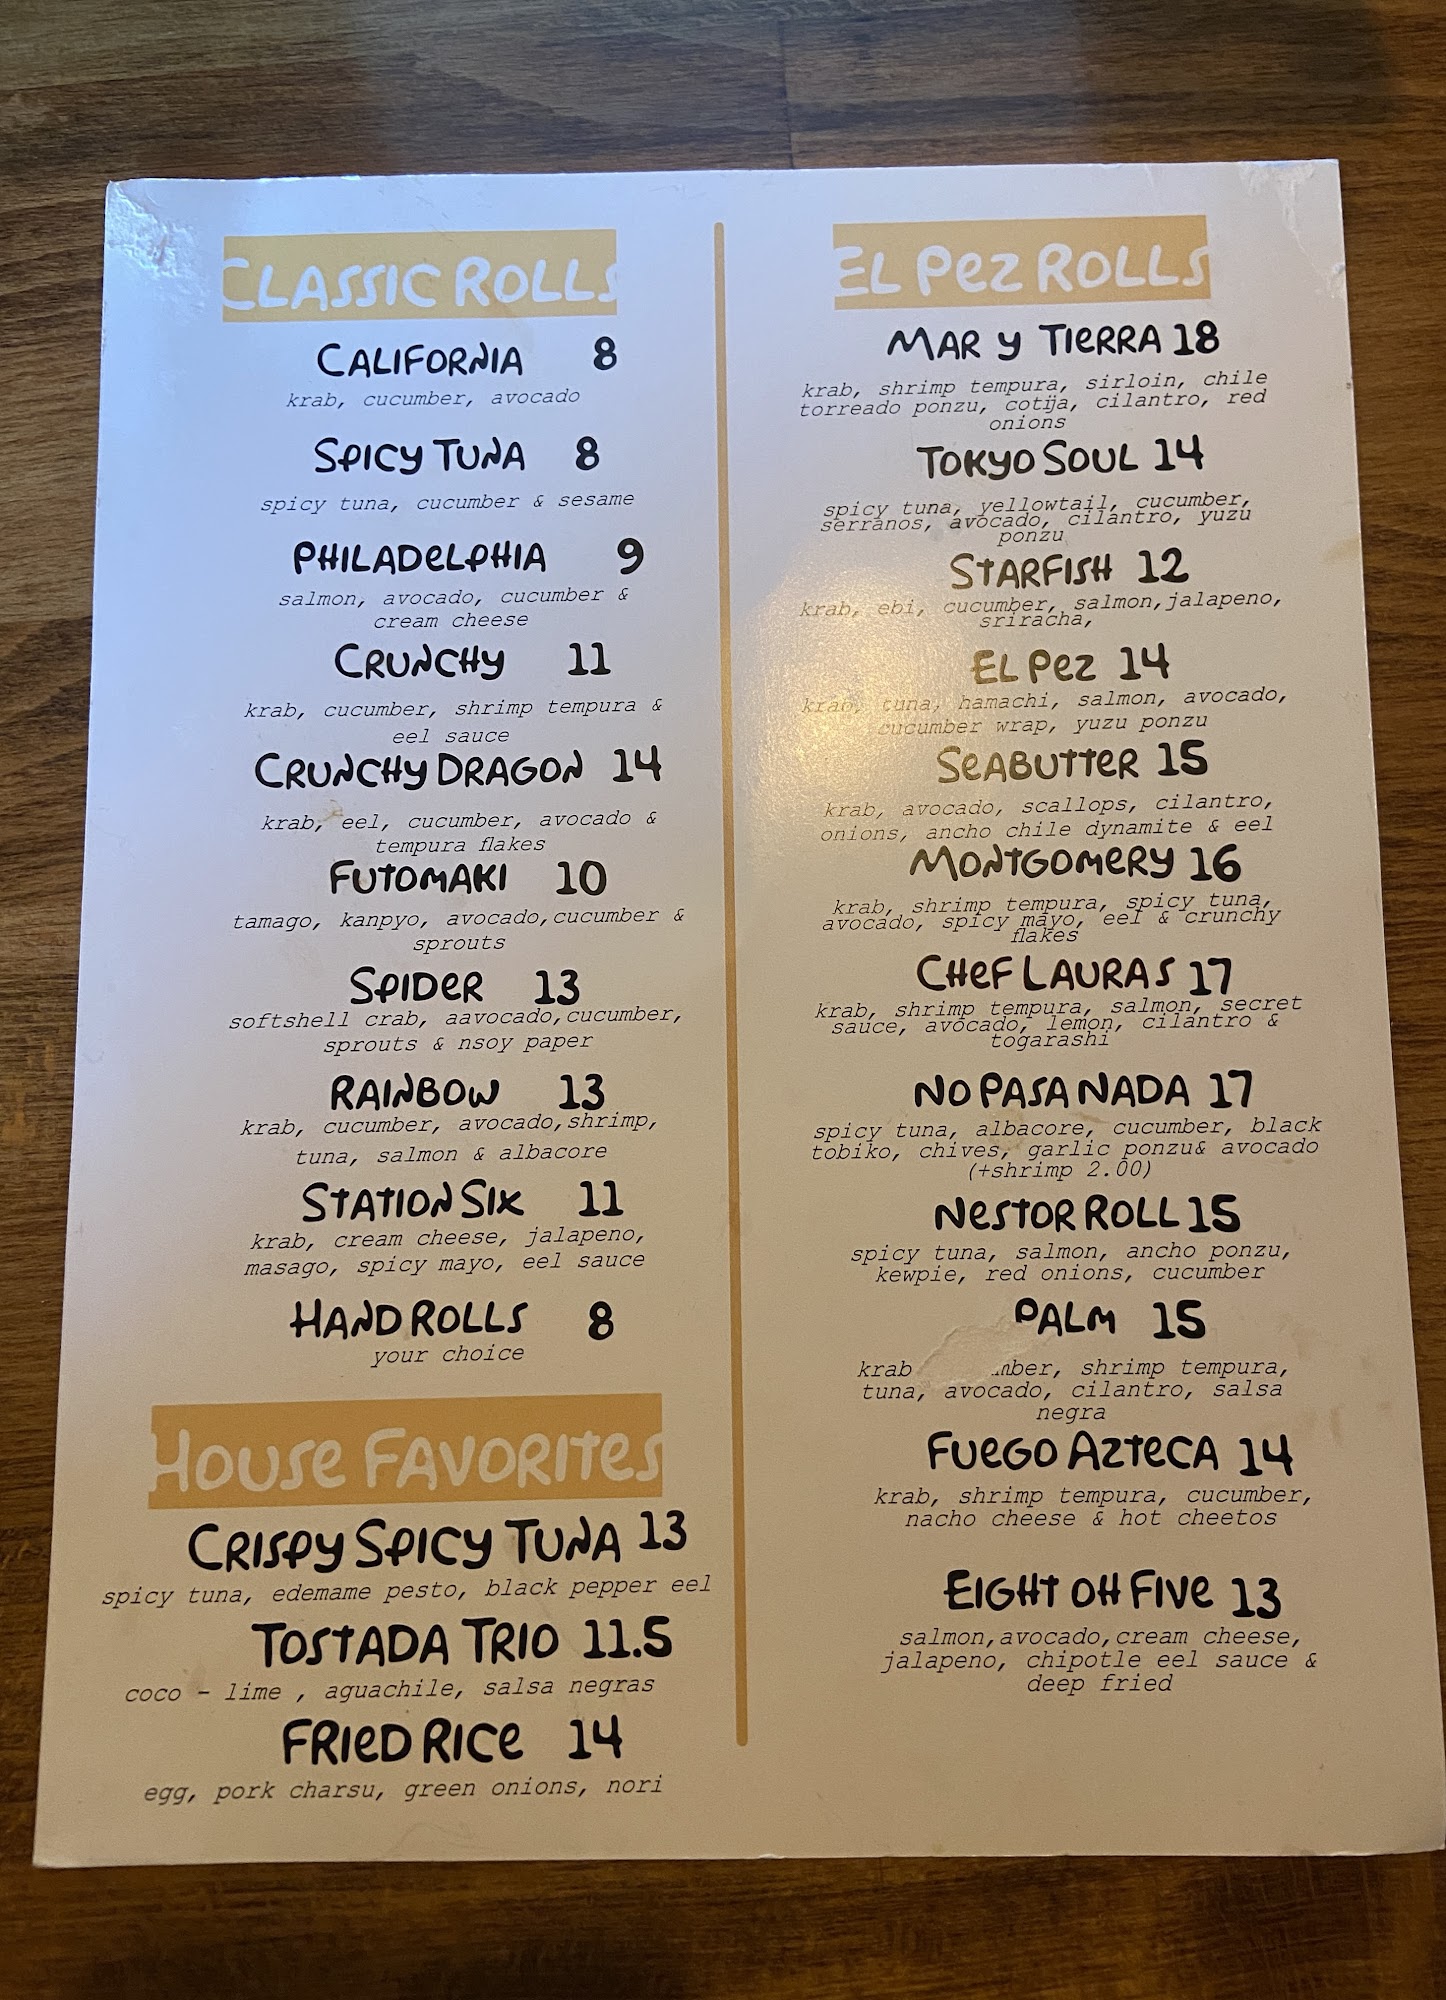 CLASSIC ROLLS
CALIFORNIA 8
krab, cucumber, avocado
SPICY TUNA 8
spicy tuna, cucumber & sesame
PHILADELPHIA 9
salmon, avocado, cucumber &
cream cheese
CRUNCHY 11
krab, cucumber, shrimp tempura &
eel sauce
CRUNCHY DRAGON 14
krab, eel, cucumber, avocado &
tempura flakes
FUTOMAKI 10
tamago, kanpyo, avocado,cucumber &
sprouts
SPIDER 13
softshell crab, aavocado,cucumber,
sprouts & nsoy paper
RAINBOW 13
krab, cucumber, avocado,shrimp,
tuna, salmon & albacore
STATION SIX 11
krab, cream cheese, jalapeno,
masago, spicy mayo, eel sauce
HAND ROLLS 8
your choice
HOUSE FAVORITES
CRISPY SPICY TUNA 13
spicy tuna, edemame pesto, black pepper eel
TOSTADA TRIO 11.5
coco - lime , aguachile, salsa negras
FRIED RICE 14
egg, pork charsu, green onions, nori
EL PEZ ROLLS
MAR Y TIERRA 18
krab, shrimp tempura, sirloin, chile
torreado ponzu, cotija, cilantro, red
onions
TOKYO SOUL 14
spicy tuna, yellowtail, cucumber,
serranos, avocado, cilantro, yuzu
ponzu
STARFISH 12
krab, ebi, cucumber, salmon,jalapeno,
sriracha,
EL PEZ 14
krab, tuna, hamachi, salmon, avocado,
cucumber wrap, yuzu ponzu
SEABUTTER 15
krab, avocado, scallops, cilantro,
onions, ancho chile dynamite & eel
MONTGOMERY 16
krab, shrimp tempura, spicy tuna,
avocado, spicy mayo, eel & crunchy
flakes
CHEF LAURAS 17
krab, shrimp tempura, salmon, secret
sauce, avocado, lemon, cilantro &
togarashi
NO PASA NADA 17
spicy tuna, albacore, cucumber, black
tobiko, chives, garlic ponzu& avocado
(+shrimp 2.00)
NESTOR ROLL 15
spicy tuna, salmon, ancho ponzu,
kewpie, red onions, cucumber
PALM 15
krab mber, shrimp tempura,
tuna, avocado, cilantro, salsa
negra
FUEGO AZTECA 14
krab, shrimp tempura, cucumber,
nacho cheese & hot cheetos
EIGHT OH FIVE 13
salmon,avocado,cream cheese,
jalapeno, chipotle eel sauce &
deep fried